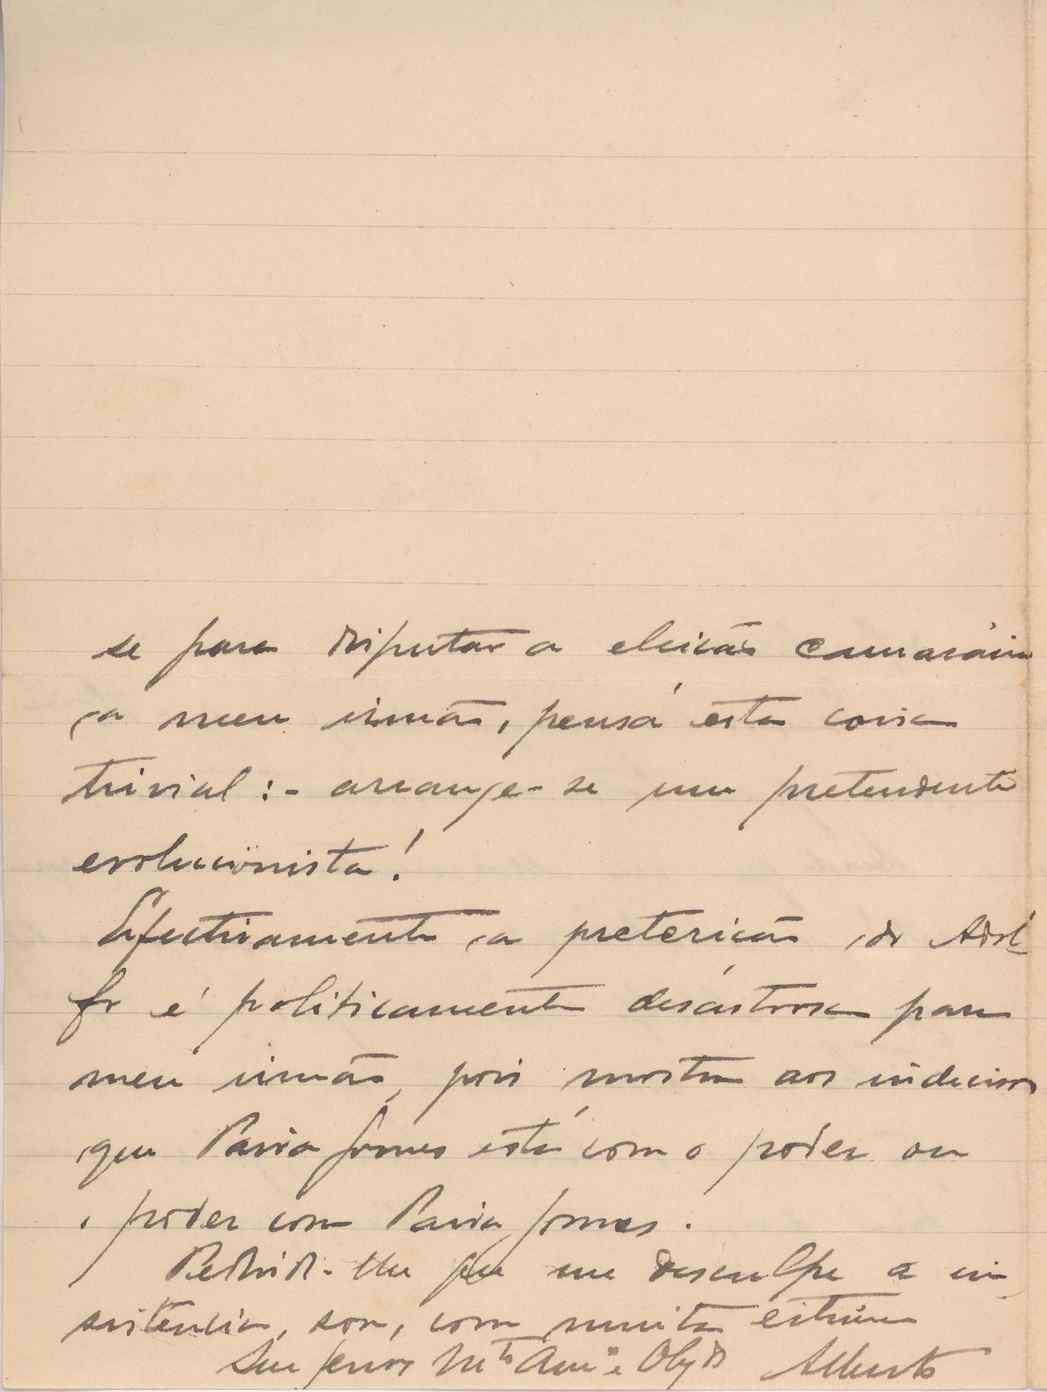 se para disputar a eleição camarária
a meu irmão, pensa esta coisa
trivial :- arranje-se um pretendente
evolucionista!
Efectivamente a preterição do Adol-
fo é politicamente desastrosa para
meu irmão, pois mostra aos indecisos
que Paiva Gomes está com o poder ou
o poder com Paiva Gomes.
Pedindo-lhe que me desculpe a in-
sistencia, sou, com muita estima
Mto Amo e Obgdo Alberto